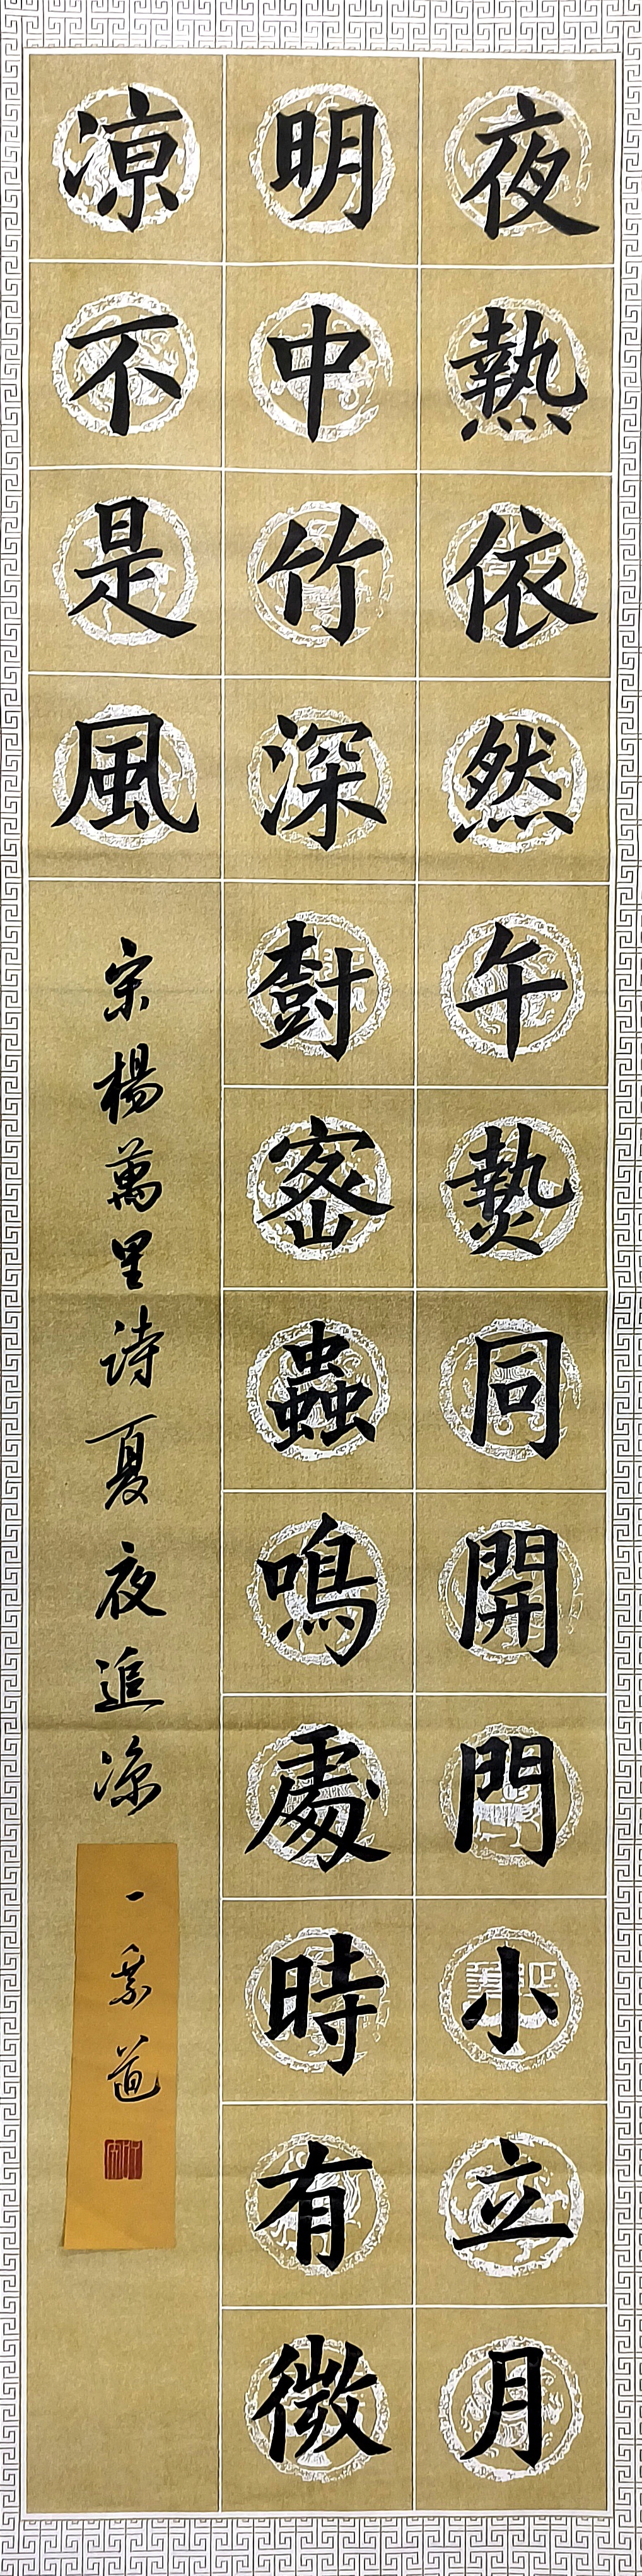 夜熱依然午熱同開門小立月
明中竹深樹密蟲鳴處時有微
凉不是風
宋楊萬里詩夏夜追凉